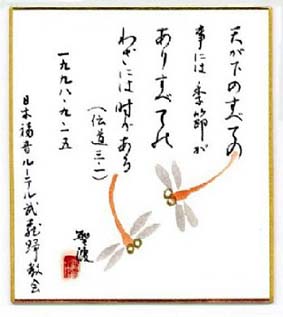 天が下のすべての
事には季節が
ありすべての
わざには時がある
(伝道三・一)
一九九八・九・一五
日本福音ルーテル武蔵野教会